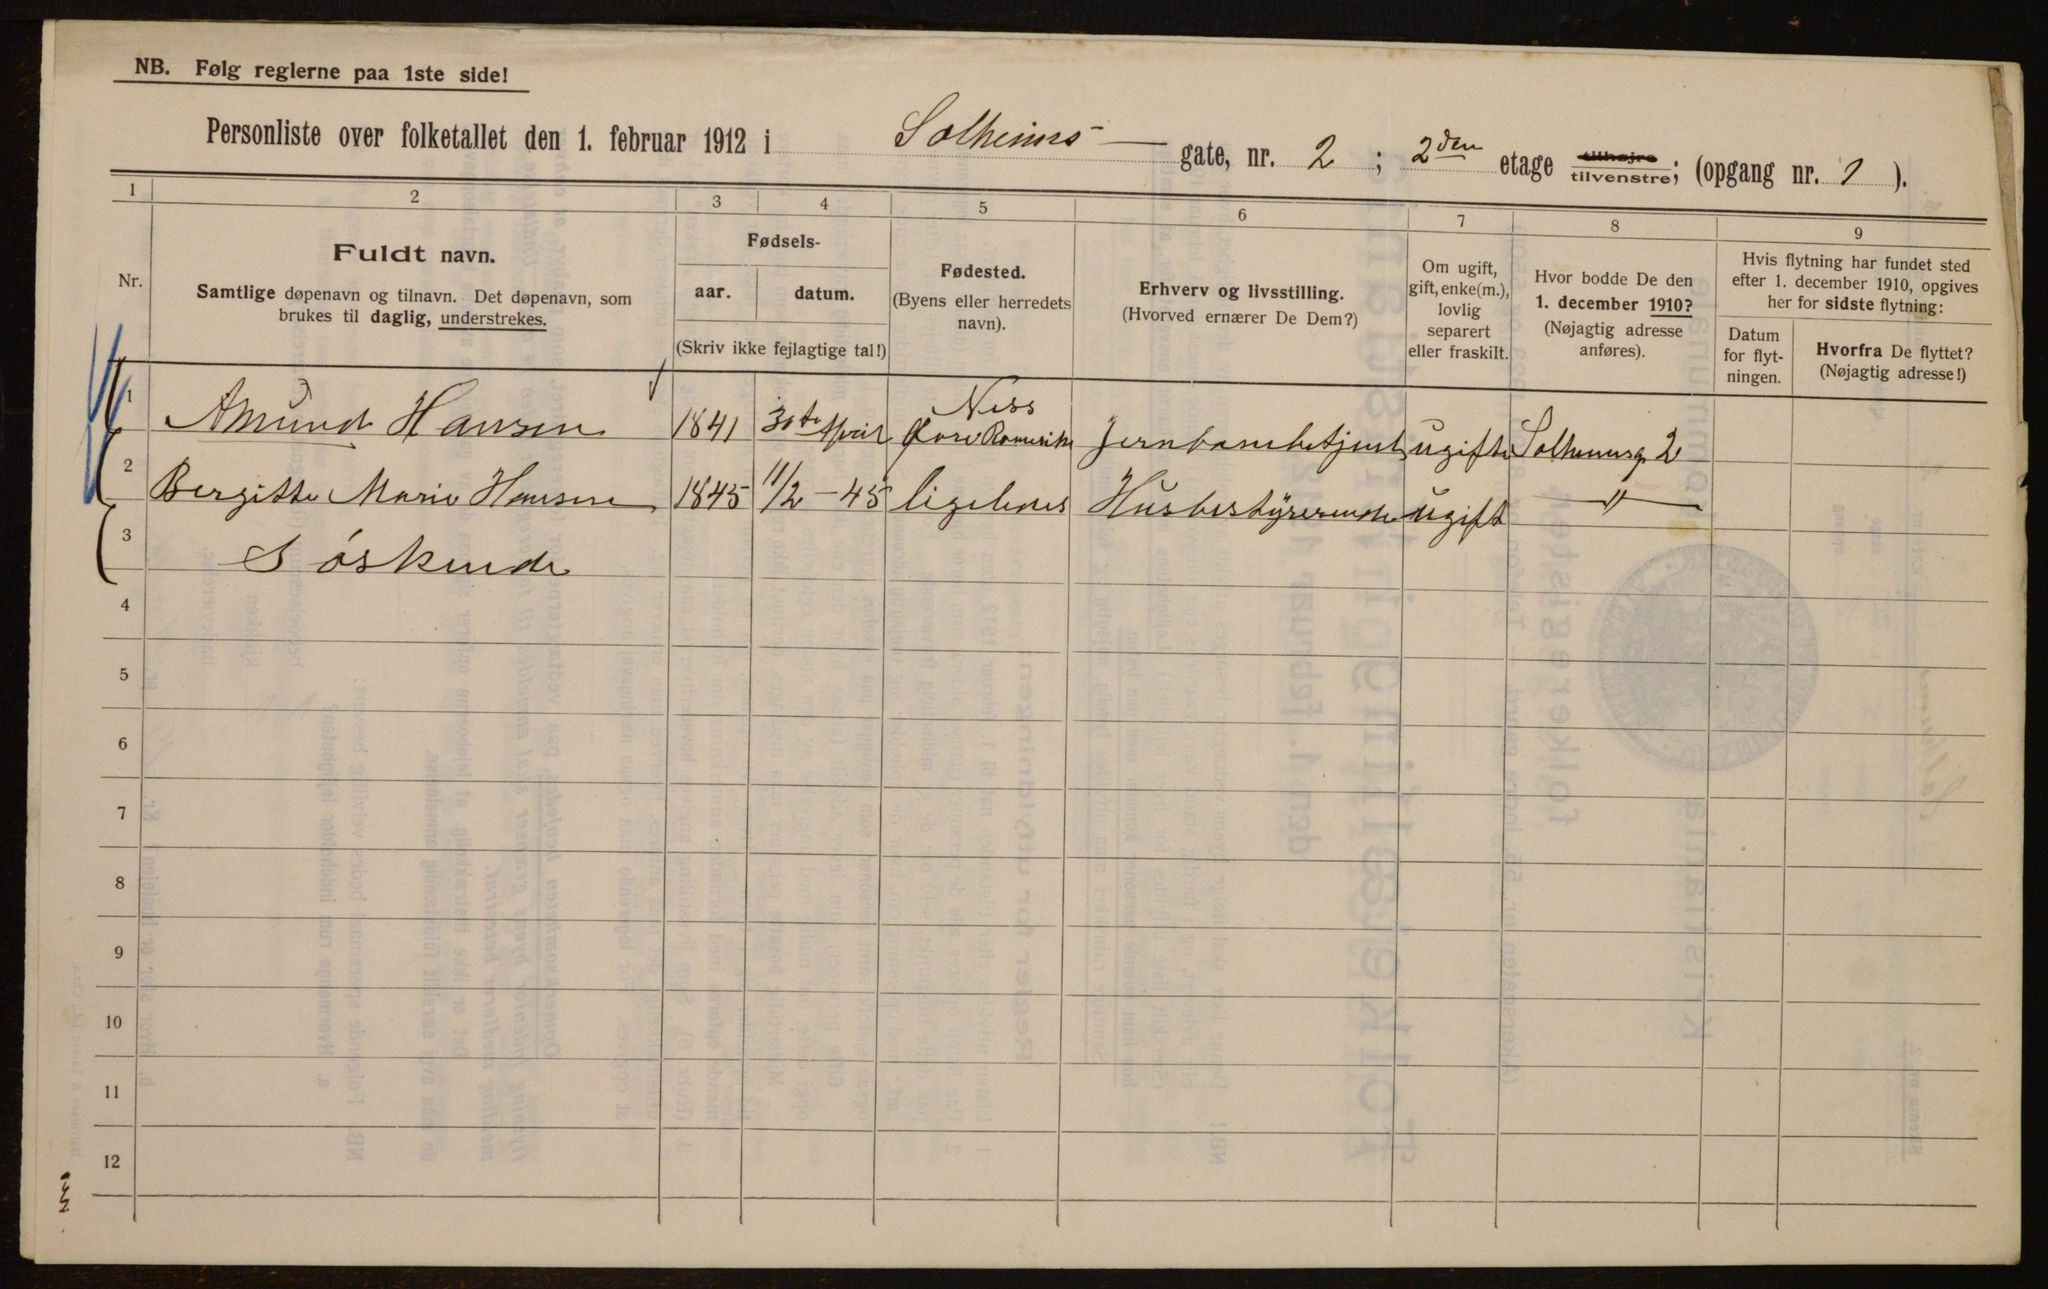 NB. Følg reglerne paa 1ste side!
Personliste over folketallet den 1. februar 1912 i Solheims gate, nr. 2 ; 2den etage tilhøjre tilvenstre; (opgang nr. 1 ).
1 2 3 4 5 6 7 8 9
Nr.
Fuldt navn.
Samtlige døpenavn og tilnavn. Det døpenavn, som
brukes til daglig, understrekes.
Fødsels-
aar. datum.
(Skriv ikke fejlagtige tal!)
Fødested.
(Byens eller herredets
navn).
Erhverv og livsstilling.
(Hvorved ernærer De Dem?)
Om ugift,
gift, enke(m.),
lovlig
separert
eller fraskilt.
Hvor bodde De den
1. december 1910?
(Nøjagtig adresse
anføres).
Hvis flytning har fundet sted
efter 1. december 1910, opgives
her for sidste flytning:
Datum
for flyt-
ningen.
Hvorfra De flyttet?
(Nøjagtig adresse!)
Ness
1 Amund Hansen 1841 30te April Romerike Jernbanebetjent ugift Solheimsg. 2
2 Bergitte Marie Hansen 1845 11/2 - 45 ligeledes Husbestyrerinde ugift — " —
3 Søskende
4
5
6
7
8
9
10
11
12